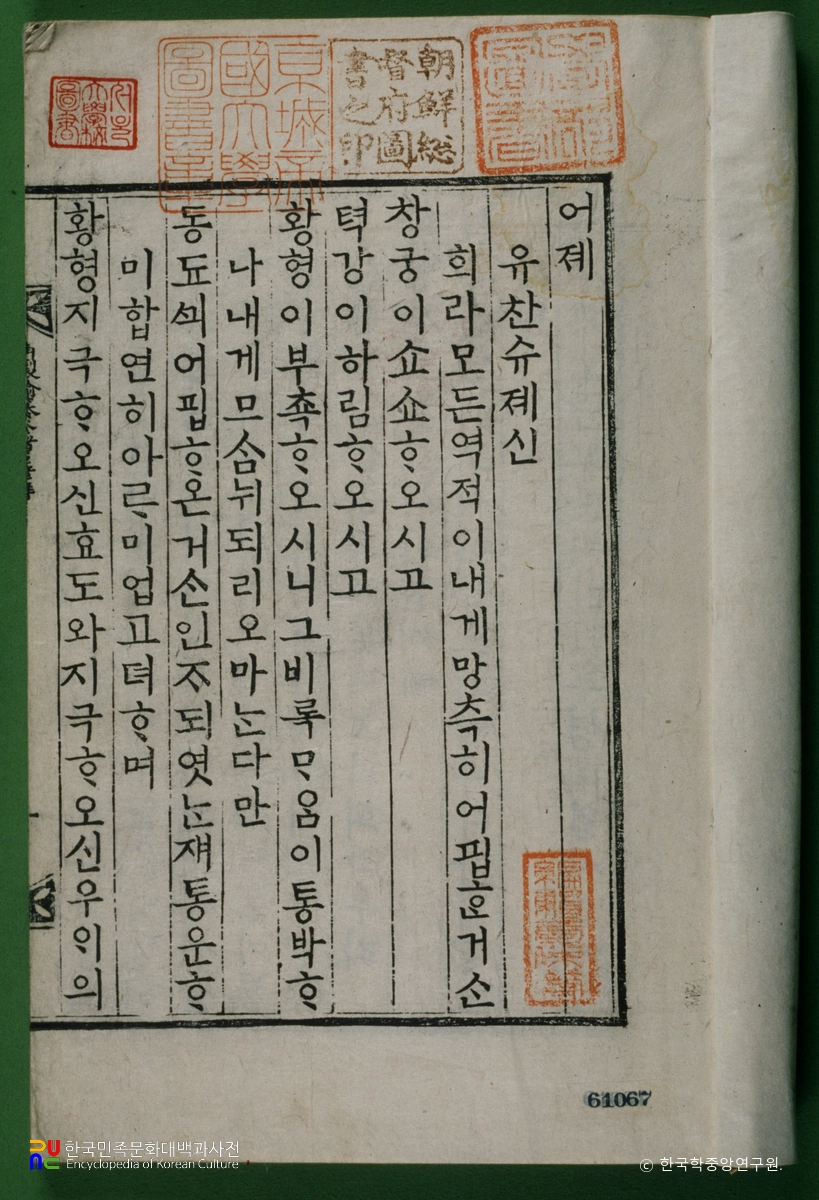 朝鮮総
督府圖
書之印
京城帝
國大學
圖書章
서울
大學校
圖書
어졔
유찬슈졔신
희라모든역적이내게망측히어핍ᄒᆞᆫ거슨
창궁이쇼쇼ᄒᆞ오시고
텩강이하림ᄒᆞ오시고
황형이부쵹ᄒᆞ오시니그비록ᄆᆞ옴이통박ᄒᆞ
나내게므슴뉘되리오마ᄂᆞᆫ다만
동됴ᄭᅴ어핍ᄒᆞ온거슨인ᄌᆞ되엿ᄂᆞᆫ쟤통운ᄒᆞ
미합연히아ᄅᆞ미업고뎌ᄒᆞ며
황형지극ᄒᆞ오신효도와지극ᄒᆞ오신우이의
61067
한국민족문화대백과사전
Encyclopedia of Korean Culture
© 한국학중앙연구원.